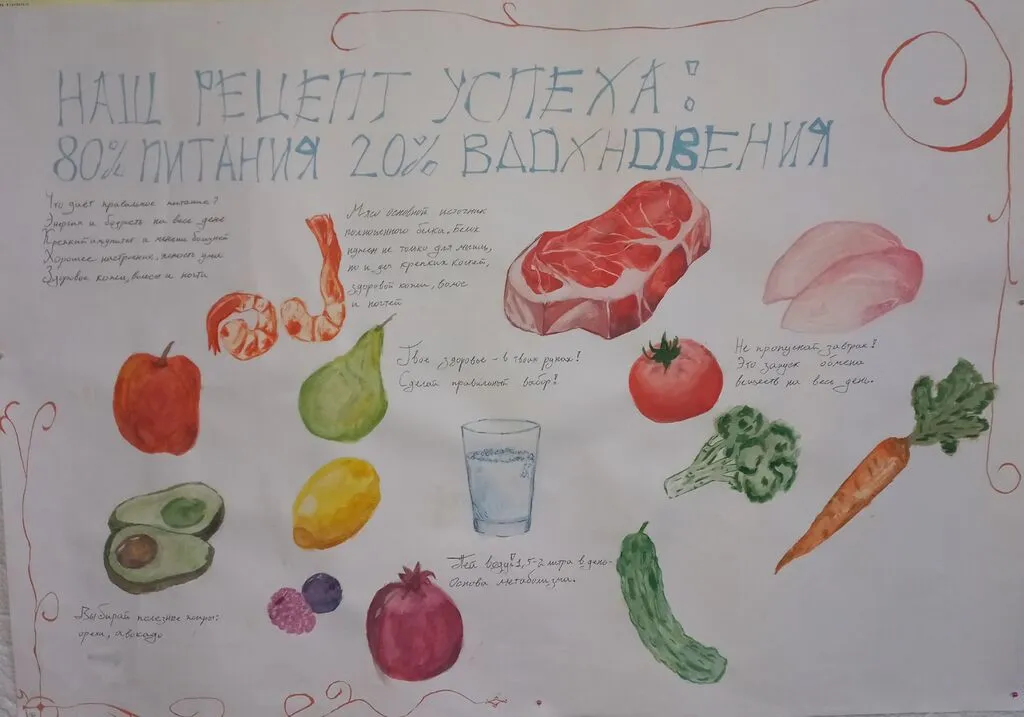 НАШ РЕЦЕПТ УСПЕХА:
80% ПИТАНИЯ 20% ВДОХНОВЕНИЯ
Что дает правильное питание?
Энергия и бодрость на весь день
Крепкий иммунитет и меньше болезней
Хорошее настроение, ясность ума
Здоровое кожи, волосы и ногти
Мясо основной источник
полноценного белка, Белок
нужен не только для мышц,
но и для крепких костей,
здоровой кожи, волос
и ногтей
Твое здоровье - в твоих руках!
Сделай правильный выбор!
Не пропускай завтрак!
Это запуск обмена
веществ на весь день.
Пей воду! 1,5-2 литра в день-
Основа метаболизма.
Выбирай полезные жиры:
орехи, авокадо